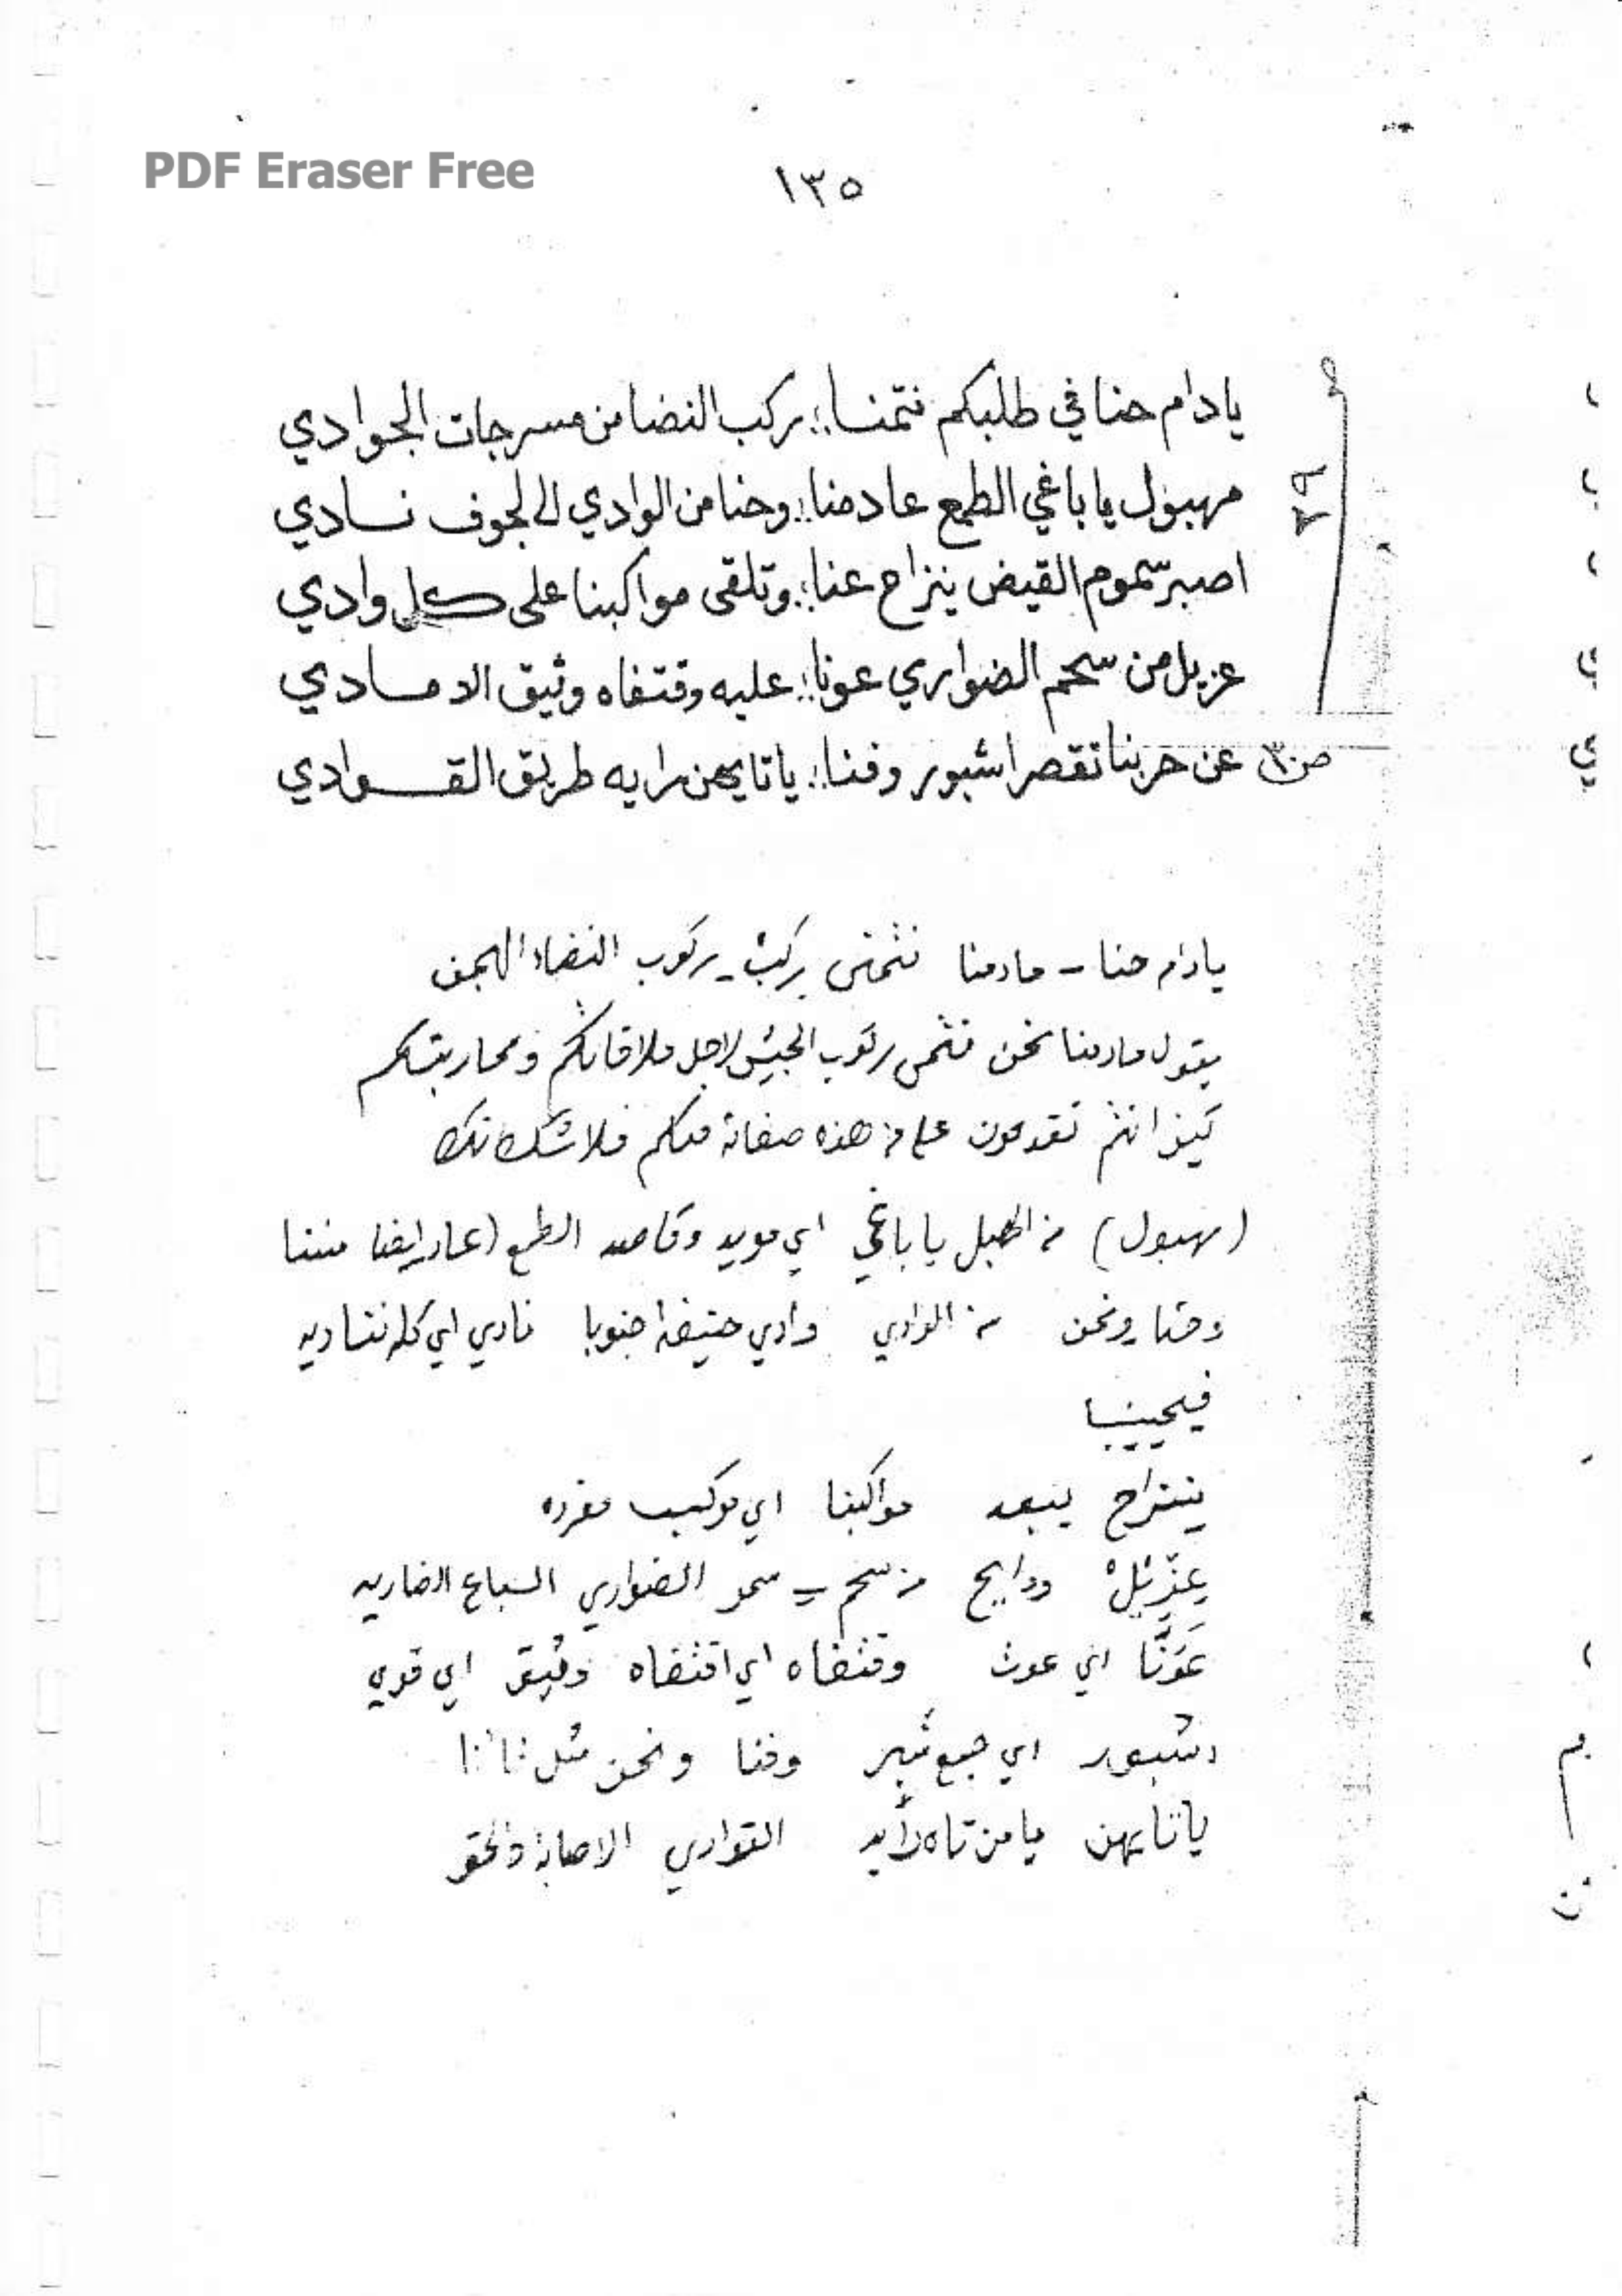 PDF Eraser Free
١٣٥
يادام حنا في طلبكم نتمنا :: ركب النضا من مسرجات الجوادي
٢٩
مهبول يا باغي الطمع عاد منا :: وحنا من الوادي الى الجوف نسادي
اصبر سموم القيض ينزاح عنا :: وتلقى مواكبنا على كل وادي
عزيل من سحم الضواري عونا :: عليه وقتفاه وثيق الامسادي
ص٣٠ عن حربنا تقصر اشبور وفنا :: يا تايهن رايه طريق القوادي
يادام حنا - مادمنا نتمنى ركب - ركوب النضاء الهجن
يقول مادمنا نحن نتمنى ركوب الجيش لاجل ملاقاتكم ومحاربتكم
كيف انتم تقدمون على من هذه صفاته منكم فلا شك انك
(مهبول) من الهبل يا باغي اي مريد وقاصد الطمع (عاد ايضا مننا
وحنا ونحن من الوادي وادي حنيفة جنوبا نادي اي كله نناديه
فيجيبنا
ينزاح يبعد مواكبنا اي موكب مفرده
عزيل من سحم - الضواري السباع الضاريه
عونا اي عوت وقتفاه اي اقتفاه وثيق اي قوي
اشبور اي جمع شبر وفنا ونحن مثل
يا تايهن يا من تاه رأيه القوادي الاصابة والحق